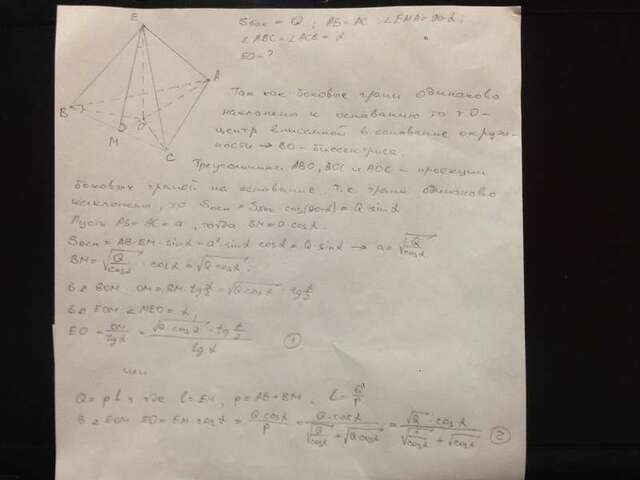 E
A
B
O
M
C
Sбок = Q ; AB = AC ; ∠EMA = 90-α ;
∠ABC = ∠ACB = α
EO - ?
Так как боковые грани одинаково
наклонены к основанию то т.О-
центр вписанной в основание окруж-
ности → BO - биссектриса.
Треугольники ABO, BCO и AOC - проекции
боковых граней на основание. Т.к. грани одинаково
наклонены, то Sосн = Sбок · cos(90-α) = Q · sinα
Пусть AB = AC = a, тогда BM = a · cosα.
Sосн = AB · BM · sinα = a² sinα cosα = Q · sinα → a = √(Q/cosα)
BM = √(Q/cosα) · cosα = √(Q · cosα) ;
В △ BOM OM = BM · tg α/2 = √(Q cosα) · tg α/2
В △ EOM ∠ MEO = α,
EO = OM/tgα = √(Q cosα) · tg α/2 / tgα ①
или
Q = pl, где l = EM, p = AB + BM, l = Q/p
В △ EOM EO = EM cosα = Q · cosα/p = Q · cosα/(√(Q/cosα) + √(Q cosα)) = √Q · cosα/(√(1/cosα) + √cosα) ②